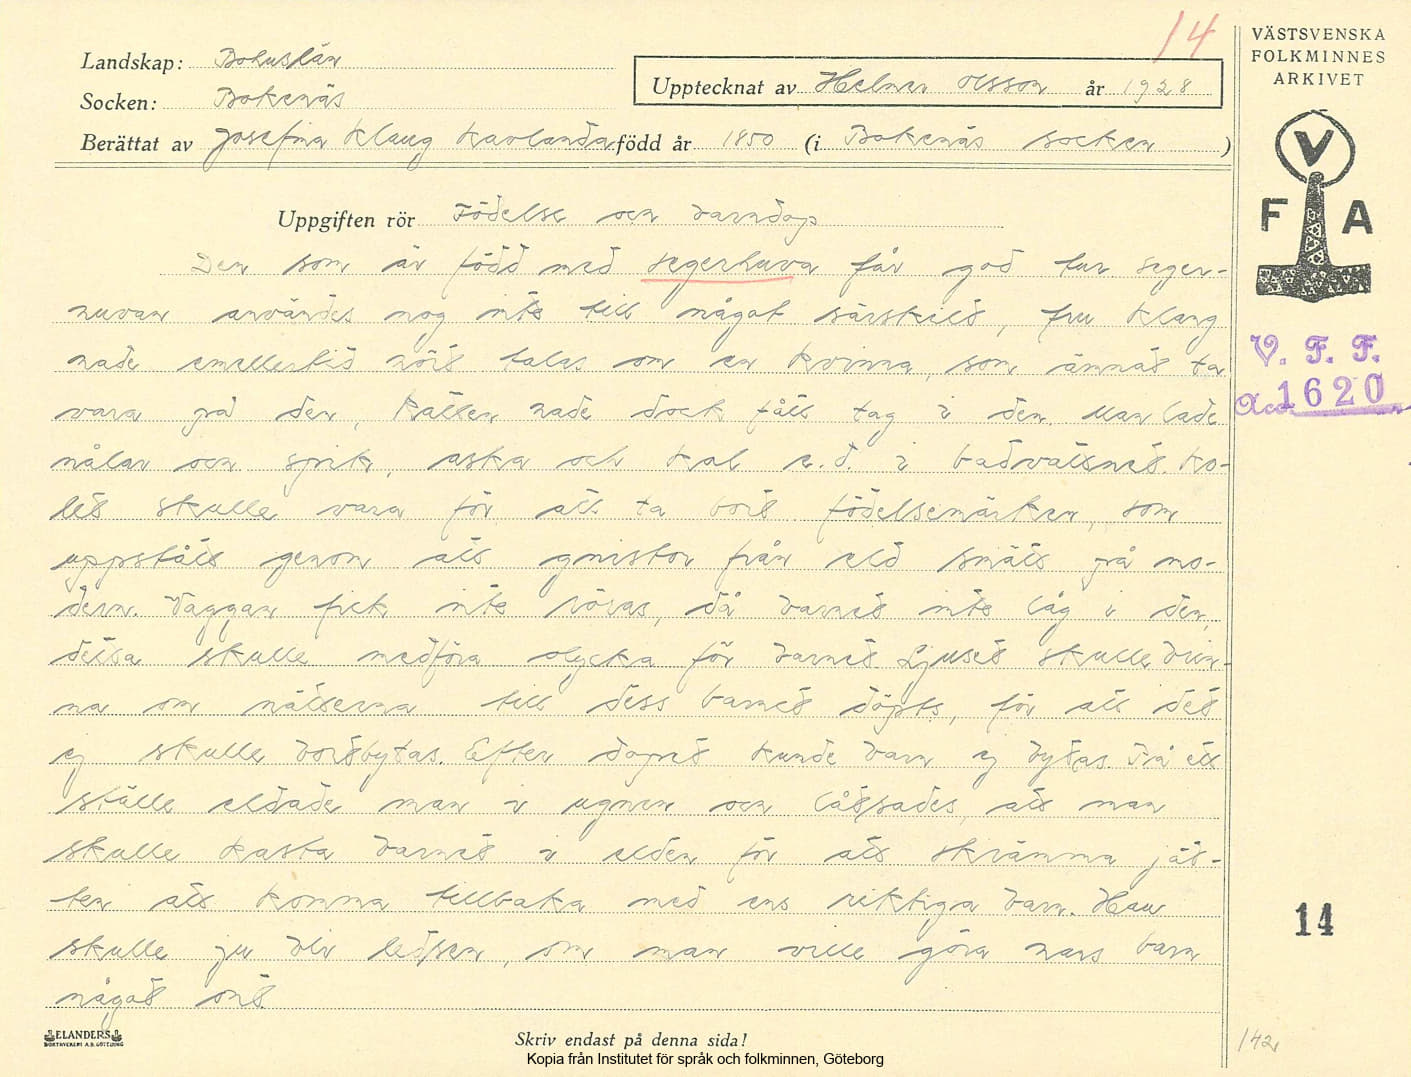 14
VÄSTSVENSKA
FOLKMINNES
ARKIVET
Landskap: Bohuslän
Socken: Bokenäs
Upptecknat av Helmer Olsson år 1928
Berättat av Josefina Klang Kavlanda född år 1850 (i Bokenäs socken )
V
F A
Uppgiften rör Födelse och barndop
Den som är född med segerhuva får god tur Seger-
huvan användes nog inte till något särskilt, fru Klang
hade emellertid hört talas om en kvinna, som ämnat ta
vara på den, Katten hade dock fått tag i den. Man lade
nålar och spik, aska och kol e.d. i badvattnet. Ko-
let skulle vara för att ta bort födelsemärken, som
uppstått genom att gnistor från eld smått på mo-
dern. Vaggan fick inte röras, då barnet inte låg i den,
detta skulle medföra olycka för barnet. Ljuset skulle brin-
na om nätterna till dess barnet döpts, för att det
ej skulle bortbytas. Efter dopet kunde barn ej bytas. På ett
ställe eldade man i ugnen och låtsades, att man
skulle kasta barnet i elden för att skrämma jät-
ten att komma tillbaka med ens riktiga barn. Han
skulle ju bli ledsen, om man ville göra hans barn
något ont.
V. F. F.
Acc. 1620
14
ELANDERS
BOKTRYCKERI A.B. GÖTEBORG
Skriv endast på denna sida!
Kopia från Institutet för språk och folkminnen, Göteborg
142